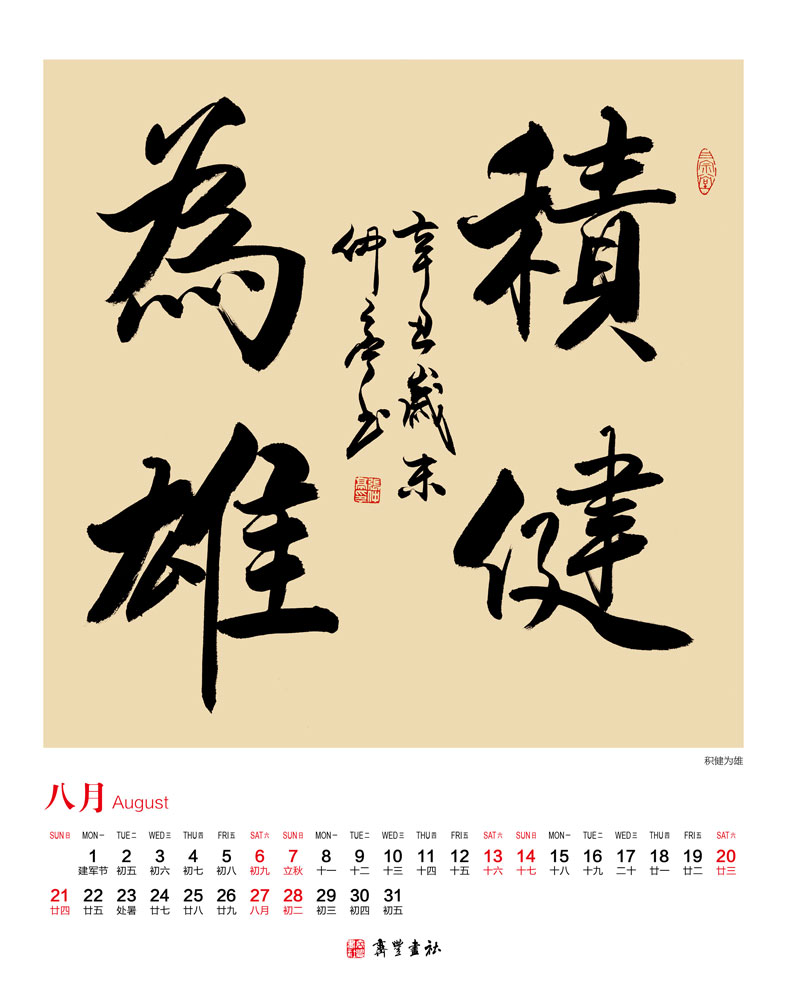 積健
為雄
辛丑歲末
仲亭书
積健为雄
八月 August
SUN日 MON一 TUE二 WED三 THU四 FRI五 SAT六 SUN日 MON一 TUE二 WED三 THU四 FRI五 SAT六 SUN日 MON一 TUE二 WED三 THU四 FRI五 SAT六
1 2 3 4 5 6 7 8 9 10 11 12 13 14 15 16 17 18 19 20
建军节 初五 初六 初七 初八 初九 立秋 十一 十二 十三 十四 十五 十六 十七 十八 十九 二十 廿一 廿二 廿三
21 22 23 24 25 26 27 28 29 30 31
廿四 廿五 处暑 廿七 廿八 廿九 八月 初二 初三 初四 初五